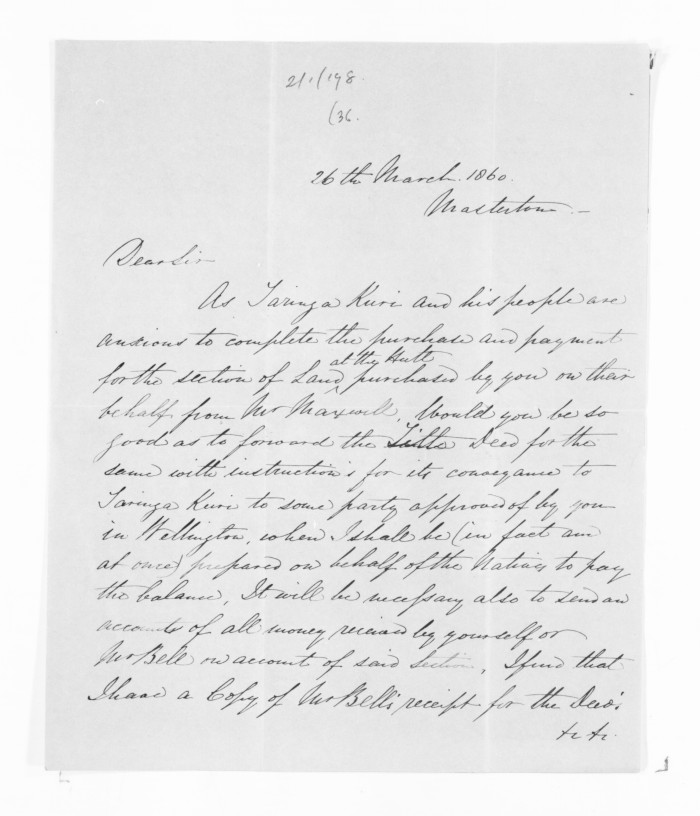 21/178.
(36.
26th March. 1860.
Masterton.—
Dear Sir
As Taringa Kuri and his people are
anxious to complete the purchase and payment
at the Hutt
for the section of Land ^ purchased by you on their
behalf from Mr Maxwell, Would you be so
good as to forward the Title Deed for the
same with instructions for its conveyance to
Taringa Kuri to some party approved of by you
in Wellington, when I shall be (in fact am
at once) prepared on behalf of the Natives to pay
the balance, It will be necessary also to send an
account of all money received by yourself or
Mr Bell on account of said section, I find that
I have a Copy of Mr Bell's receipt for the Deeds
&c &c.